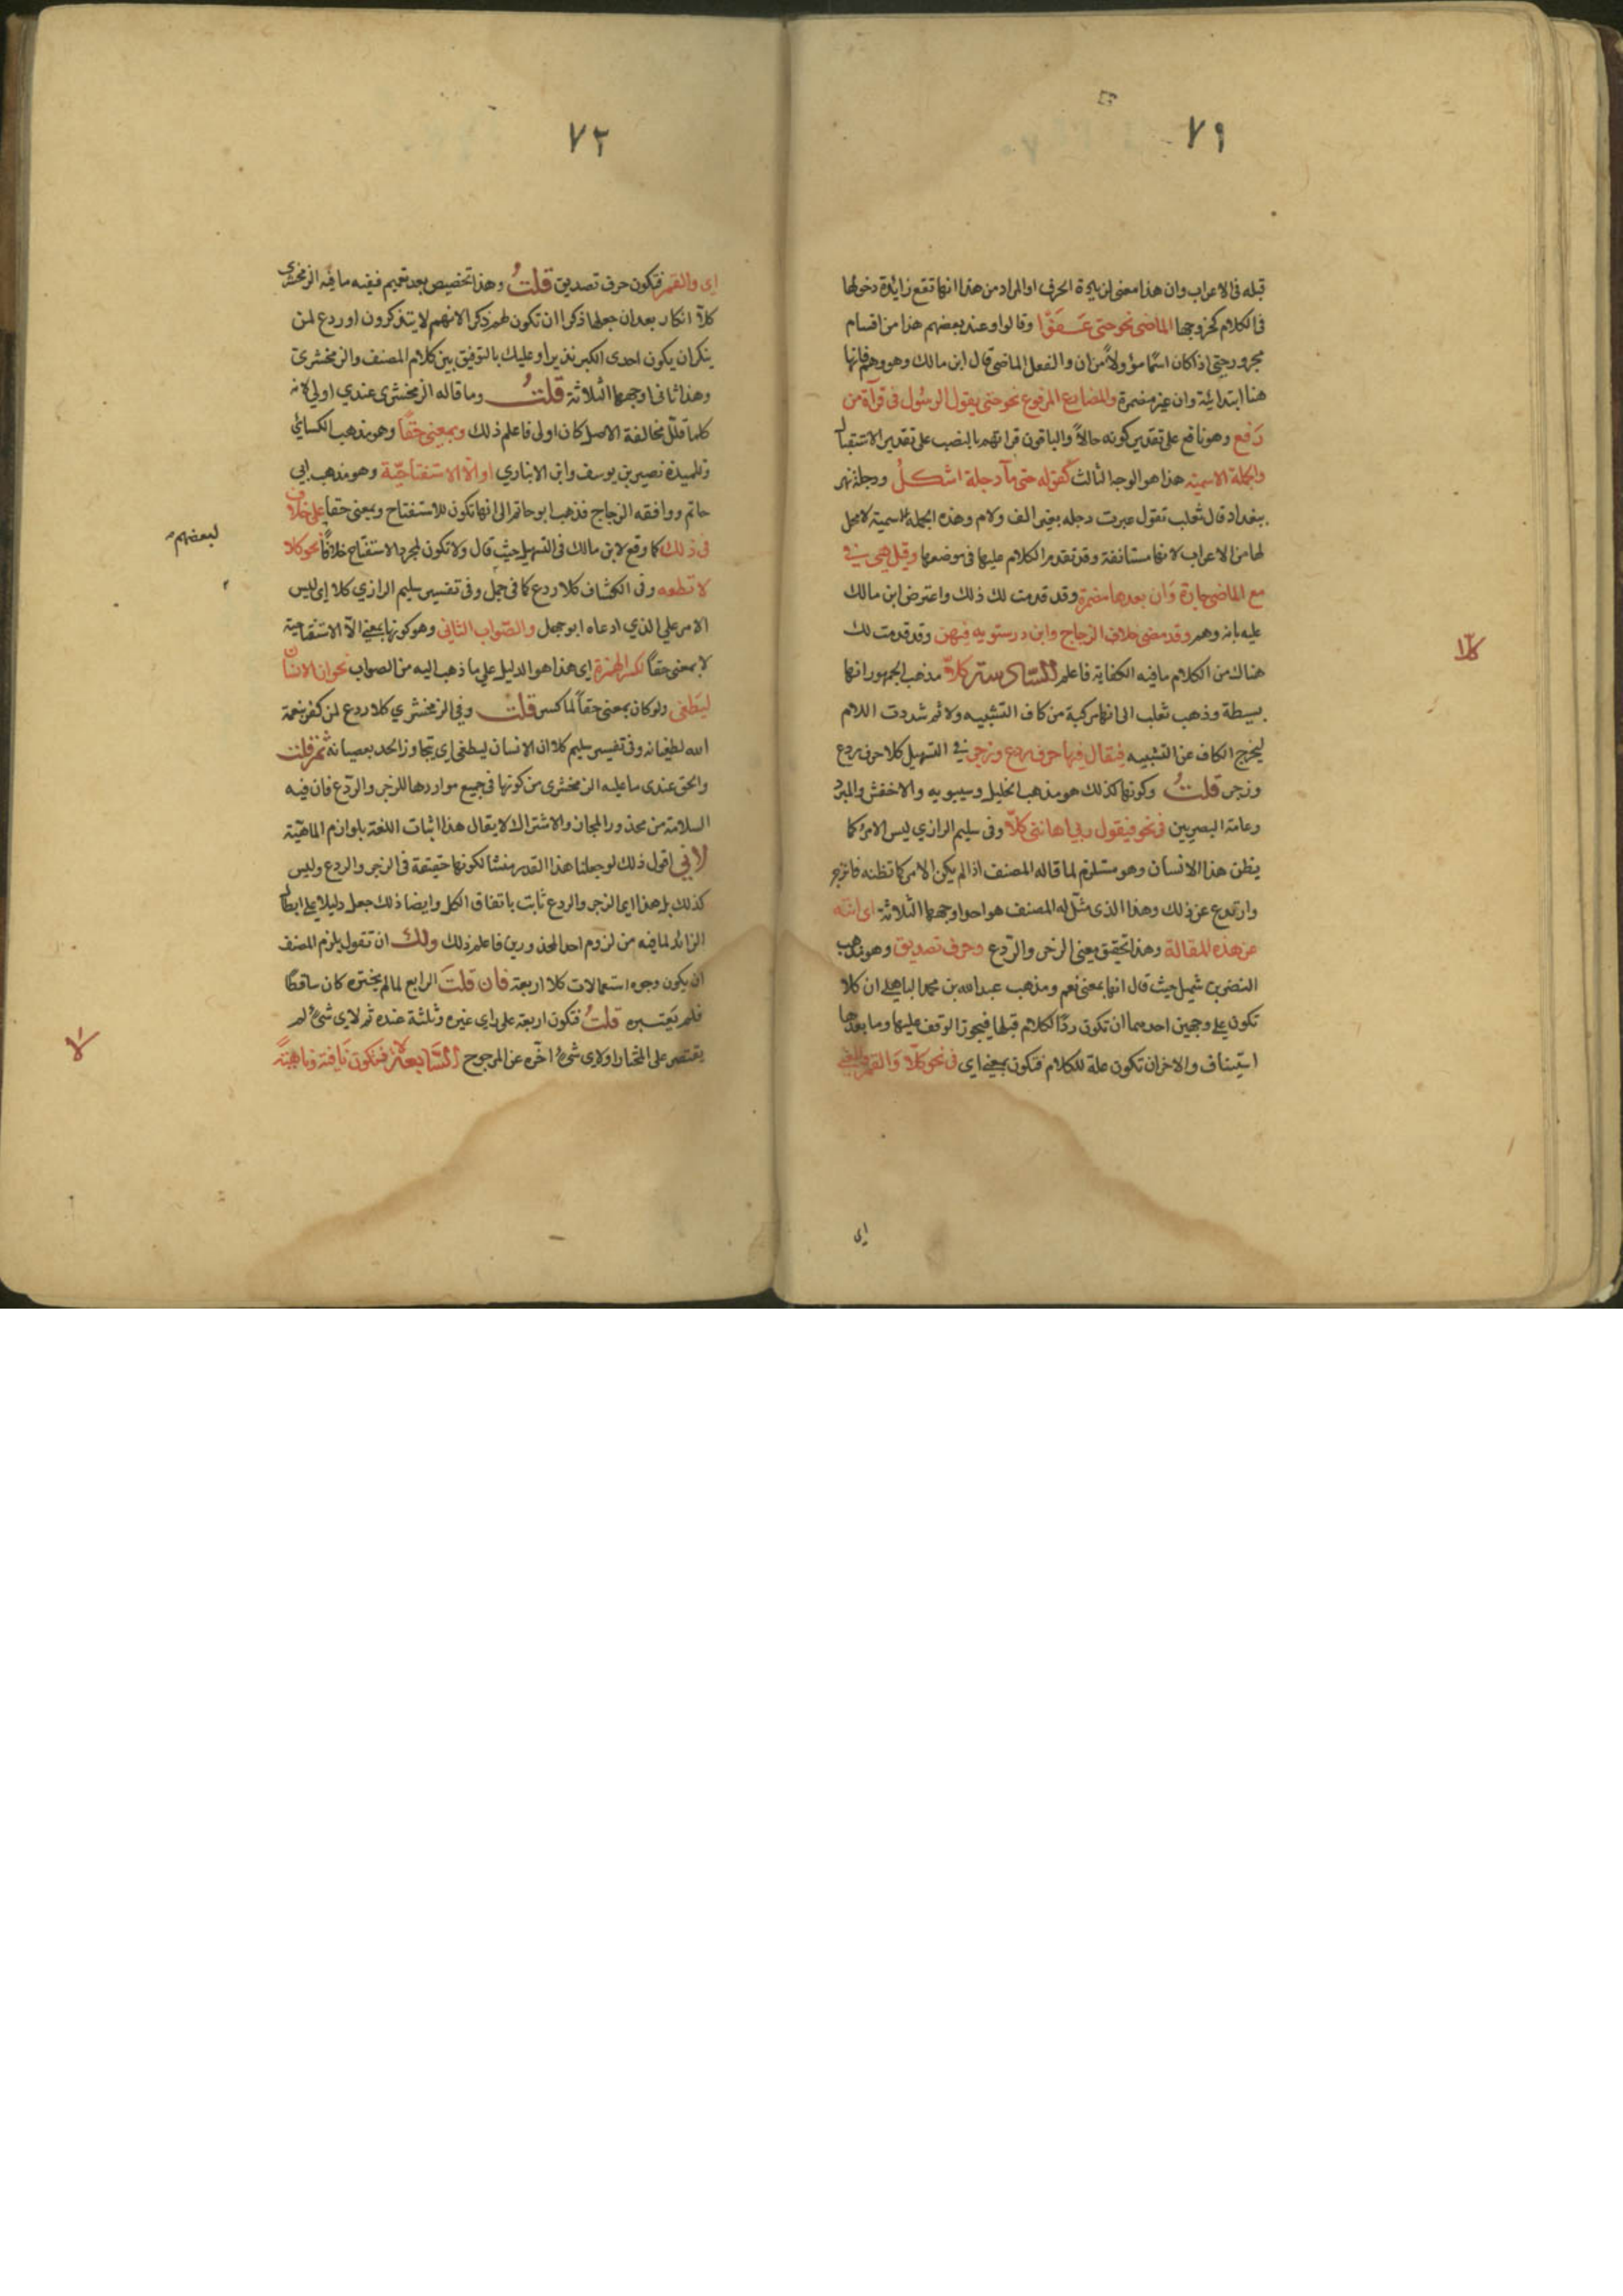 ٧١
قبله فى الاعراب وان هذا معنى لن يادة الحرف او المراد من هذا انها تقع زائدة دخولها
فى الكلام كخروجها الماضى نحو حتى عَفَوْا وقالوا وعند بعضهم هذا من اقسام
مجرور حتى اذا كان اسمًا مؤولاً من ان والفعل الماضى قال ابن مالك وهو وهم فانها
هنا ابتدائية وان غير مضمرة والمضارع المرفوع نحو حتى يقول الرسول فى قرآة من
رفع وهو نافع على تقدير كونه حالاً والباقون قراتهم بالنصب على تقدير الاستقبال
والجملة الاسمية هذا هو الوجه الثالث كقوله حتى مآ دجلة اشكلُ ودجلة نهر
بغداد قال ثعلب تقول عبرت دجله بغير الف ولام وهذه الجملة الاسمية لا محل
لها من الاعراب لانها مستانفة وقد تقدم الكلام عليها فى موضعها وقيل هى فى
مع الماضى جارة وَان بعدها مضمرة وقد قدمت لك ذلك واعترض ابن مالك
عليه بانه وهم وقد مضى خلاف الزجاج وابن درستويه فيهن وقد قدمت لك
هناك من الكلام ما فيه الكفاية فاعلم السّادسة كلاّ مذهب الجمهور انها
كلآ
بسيطة وذهب ثعلب الى انها مركبة من كاف التشبيه ولا ثم شددت اللام
ليخرج الكاف عن التشبيه فيقال فيها حرف ردع وزجر فى التسهيل كلا حرف ردع
وزجر قلتُ وكونها كذلك هو مذهب الخليل وسيبويه والاخفش والمبرد
وعامة البصريين فى نحو فيقول ربي اهاننى كلاّ وفى سليم الرازي ليس الامر كما
يظن هذا الانسان وهو مستلزم لما قاله المصنف اذا لم يكن الامر كما تظنه فانزجر
وارتدع عن ذلك وهذا الذى مثّل له المصنف هو احد اوجهها الثلاثة اى انته
عن هذه المقالة وهذا تحقيق معنى الزجر والرّدع وحرف تصديق وهو مذهب
النضر بن شميل حيث قال انها بمعنى نعم ومذهب عبد الله بن محمد الباهلى ان كلا
تكون على وجهين احدهما ان تكون ردًا لكلام قبلها فيجوز الوقف عليها وما بعدها
استيناف والاخر ان تكون صلة للكلام فتكون بمعنى اى فى نحو كلاّ وَالقمر والمعنى
اى
٧٢
اى والقمر فتكون حرف تصديق قلتُ وهذا تخصيص بعد تعميم ففيه ما فيه الزمخشرى
كلآ انكار بعد ان جعلها ذكرا ان تكون لهم ذكرا لانهم لا يتذكرون او ردع لمن
ينكر ان يكون احدى الكبر نذيرا وعليك بالتوفيق بين كلام المصنف والزمخشرى
وهذا ثانى اوجهها الثلاثة قلتُ وما قاله الزمخشرى عندي اولى لانه
كلما قلّل مخالفة الاصل كان اولى فاعلم ذلك وبمعنى حقاً وهو مذهب الكسائي
وتلميذه نصير بن يوسف وابن الانباري او الاَ الاستفتاحيّة وهو مذهب ابى
حاتم ووافقه الزجاج فذهب ابو حاتم الى انها تكون للاستفتاح وبمعنى حقا على خلاف
لبعضهم
فى ذلك كما وقع لابن مالك فى التسهيل حيث قال ولا تكون لمجرد الاستفتاح خلافًا نحو كلا
لا تطعه وفى الكشاف كلا ردع كما فى جمل وفى تفسير سليم الرازي كلا اى ليس
الامر على الذي ادعاه ابو جهل والصّواب الثانى وهو كونها بمعنى الاَ الاستفتاحية
لا بمعنى حقاً لكسر الهمزة اى هذا هو الدليل على ما ذهب اليه من الصواب نحو ان الانسان
ليَطغى ولو كان بمعنى حقاً لما كسر قلتُ وفى الزمخشري كلا ردع لمن كفر بنعمة
الله لطغيانه وفى تفسير سليم كلا ان الانسان ليطغى اى يتجاوز الحد بعصيانه ثم قلت
والحق عندى ما عليه الزمخشرى من كونها فى جميع مواردها للزجر والرّدع فان فيه
السلامة من محذور المجاز والاشتراك لا يقال هذا اثبات اللغة بلوازم الماهيّة
لانّي اقول ذلك لو جعلنا هذا القدر منشا لكونها حقيقة فى الزجر والردع وليس
كذلك بل هذا اى الزجر والردع ثابت باتفاق الكل وايضا ذلك جعل دليلا على ابطال
الزائد لما فيه من لزوم احد المحذورين فاعلم ذلك ولك ان تقول يلزم المصنف
ان يكون وجوه استعمالات كلا اربعة فان قلتَ الرابع لما لم يختره كان ساقطًا
فلم يَعتبره قلتُ فتكون اربعة على راى غيره وثلثة عنده ثم لاى شئ لم
يقتصر على المختار او لاى شئ اخّره عن المرجوح السّابعة لا فتكون نَافية وناهيَةً
لا